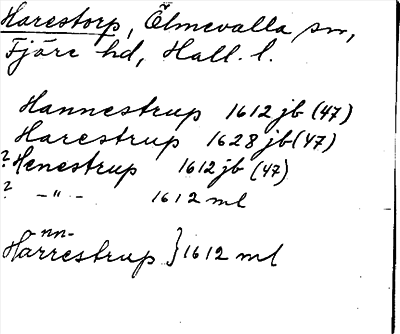 Harestorp, Ölmevalla sn,
Fjäre hd, Hall. l.
Hannestrup 1612 jb (47)
Harestrup 1628 jb (47)
? Henestrup 1612 jb (47)
? -"- 1612 ml
-nn-
Harrestrup } 1612 ml